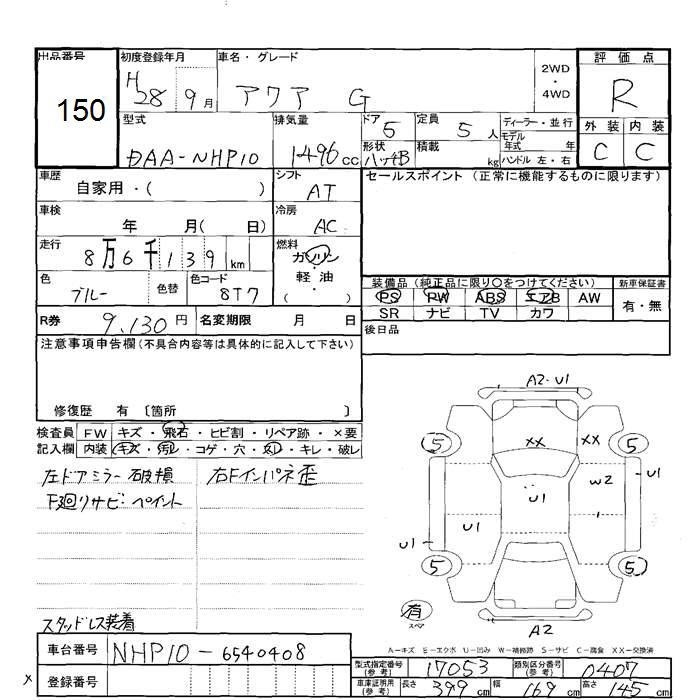 出品番号 初度登録年月 車名・グレード 2WD・4WD 評価点
150 H28 9月 アクア G R
型式 排気量 ドア 5 定員 5人 ディーラー・並行 外装 内装
DAA-NHP10 1496cc 形状 ハッチB 積載 kg モデル年式 年 ハンドル 左・右 C C
車歴 自家用・( ) シフト AT セールスポイント (正常に機能するものに限ります)
車検 年 月( 日) 冷房 AC
走行 8万6千139km 燃料 ガソリン・軽油・( )
色 ブルー 色替 色コード 8T7
装備品 (純正品に限り○をつけてください) 新車保証書
PS PW ABS エアB AW 有・無
SR ナビ TV カワ
R券 9,130円 名変期限 月 日 後日品
注意事項申告欄(不具合内容等は具体的に記入して下さい)
修復歴 有 〔箇所 〕
検査員記入欄 FW キズ・飛石・ヒビ割・リペア跡・×要
内装 キズ・汚レ・コゲ・穴・スレ・キレ・破レ
左ドアミラー破損 右Fインパネ歪
下廻りサビ・ペイント
スタッドレス装着
A2・U1
5 XX XX 5
U1 W2 U1
U1 U1
5 5
有 スペア
A2
A-キズ E-エクボ U-凹み W-補修跡 S-サビ C-腐食 XX-交換済
車台番号 NHP10-6540408 型式指定番号(参考) 17053 類別区分番号(参考) 0407
× 登録番号 車庫証明用(参考) 長さ 399cm 幅 169cm 高さ 145cm